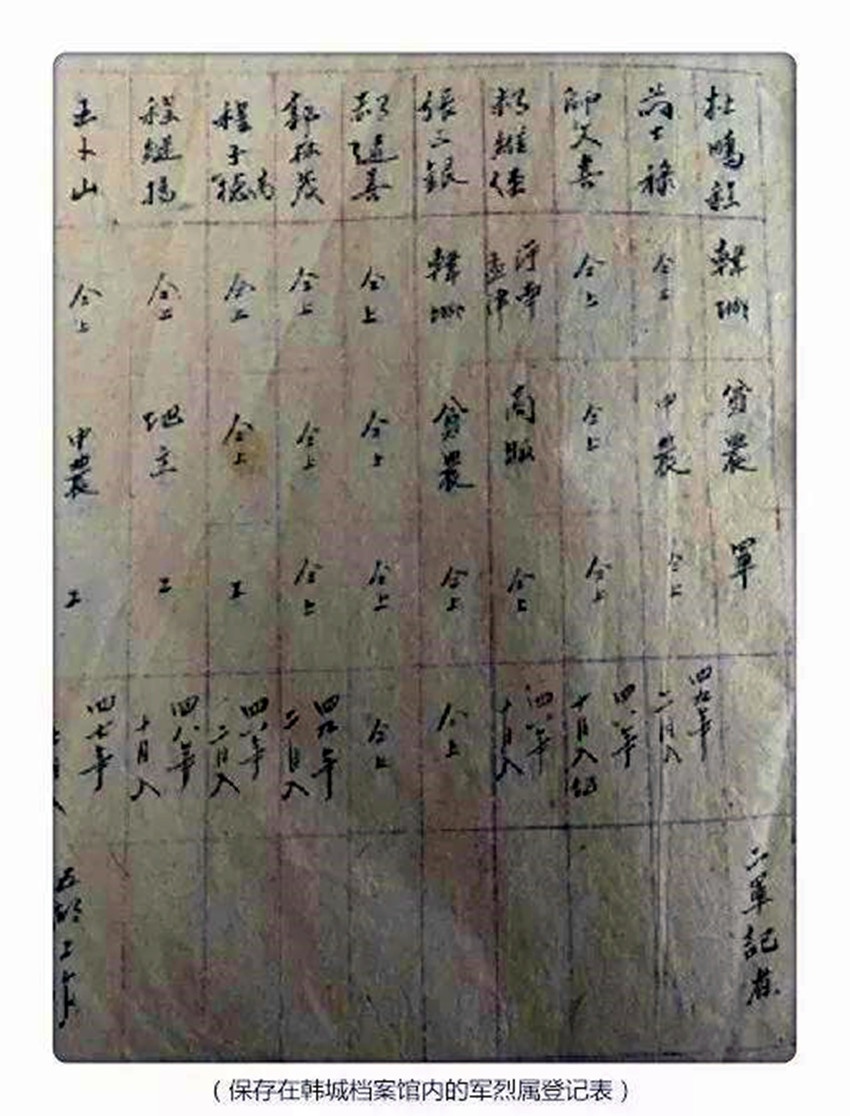 杜鵬程
韓城
貧農
軍
四九年
二月入
二軍記者
尚士祿
仝上
中農
仝上
四八年
十月入伍
師文喜
仝上
仝上
仝上
四八年
十月入
楊維俊
商販
仝上
張三銀
韓城
貧農
仝上
仝上
郝進善
仝上
仝上
仝上
仝上
郭振茂
仝上
仝上
仝上
四九年
二月入
程子德
仝上
仝上
工
四八年
二月入
程繼揚
仝上
地主
工
四八年
十月入
王卜山
仝上
中農
工
四七年
(保存在韩城档案馆内的军烈属登记表)